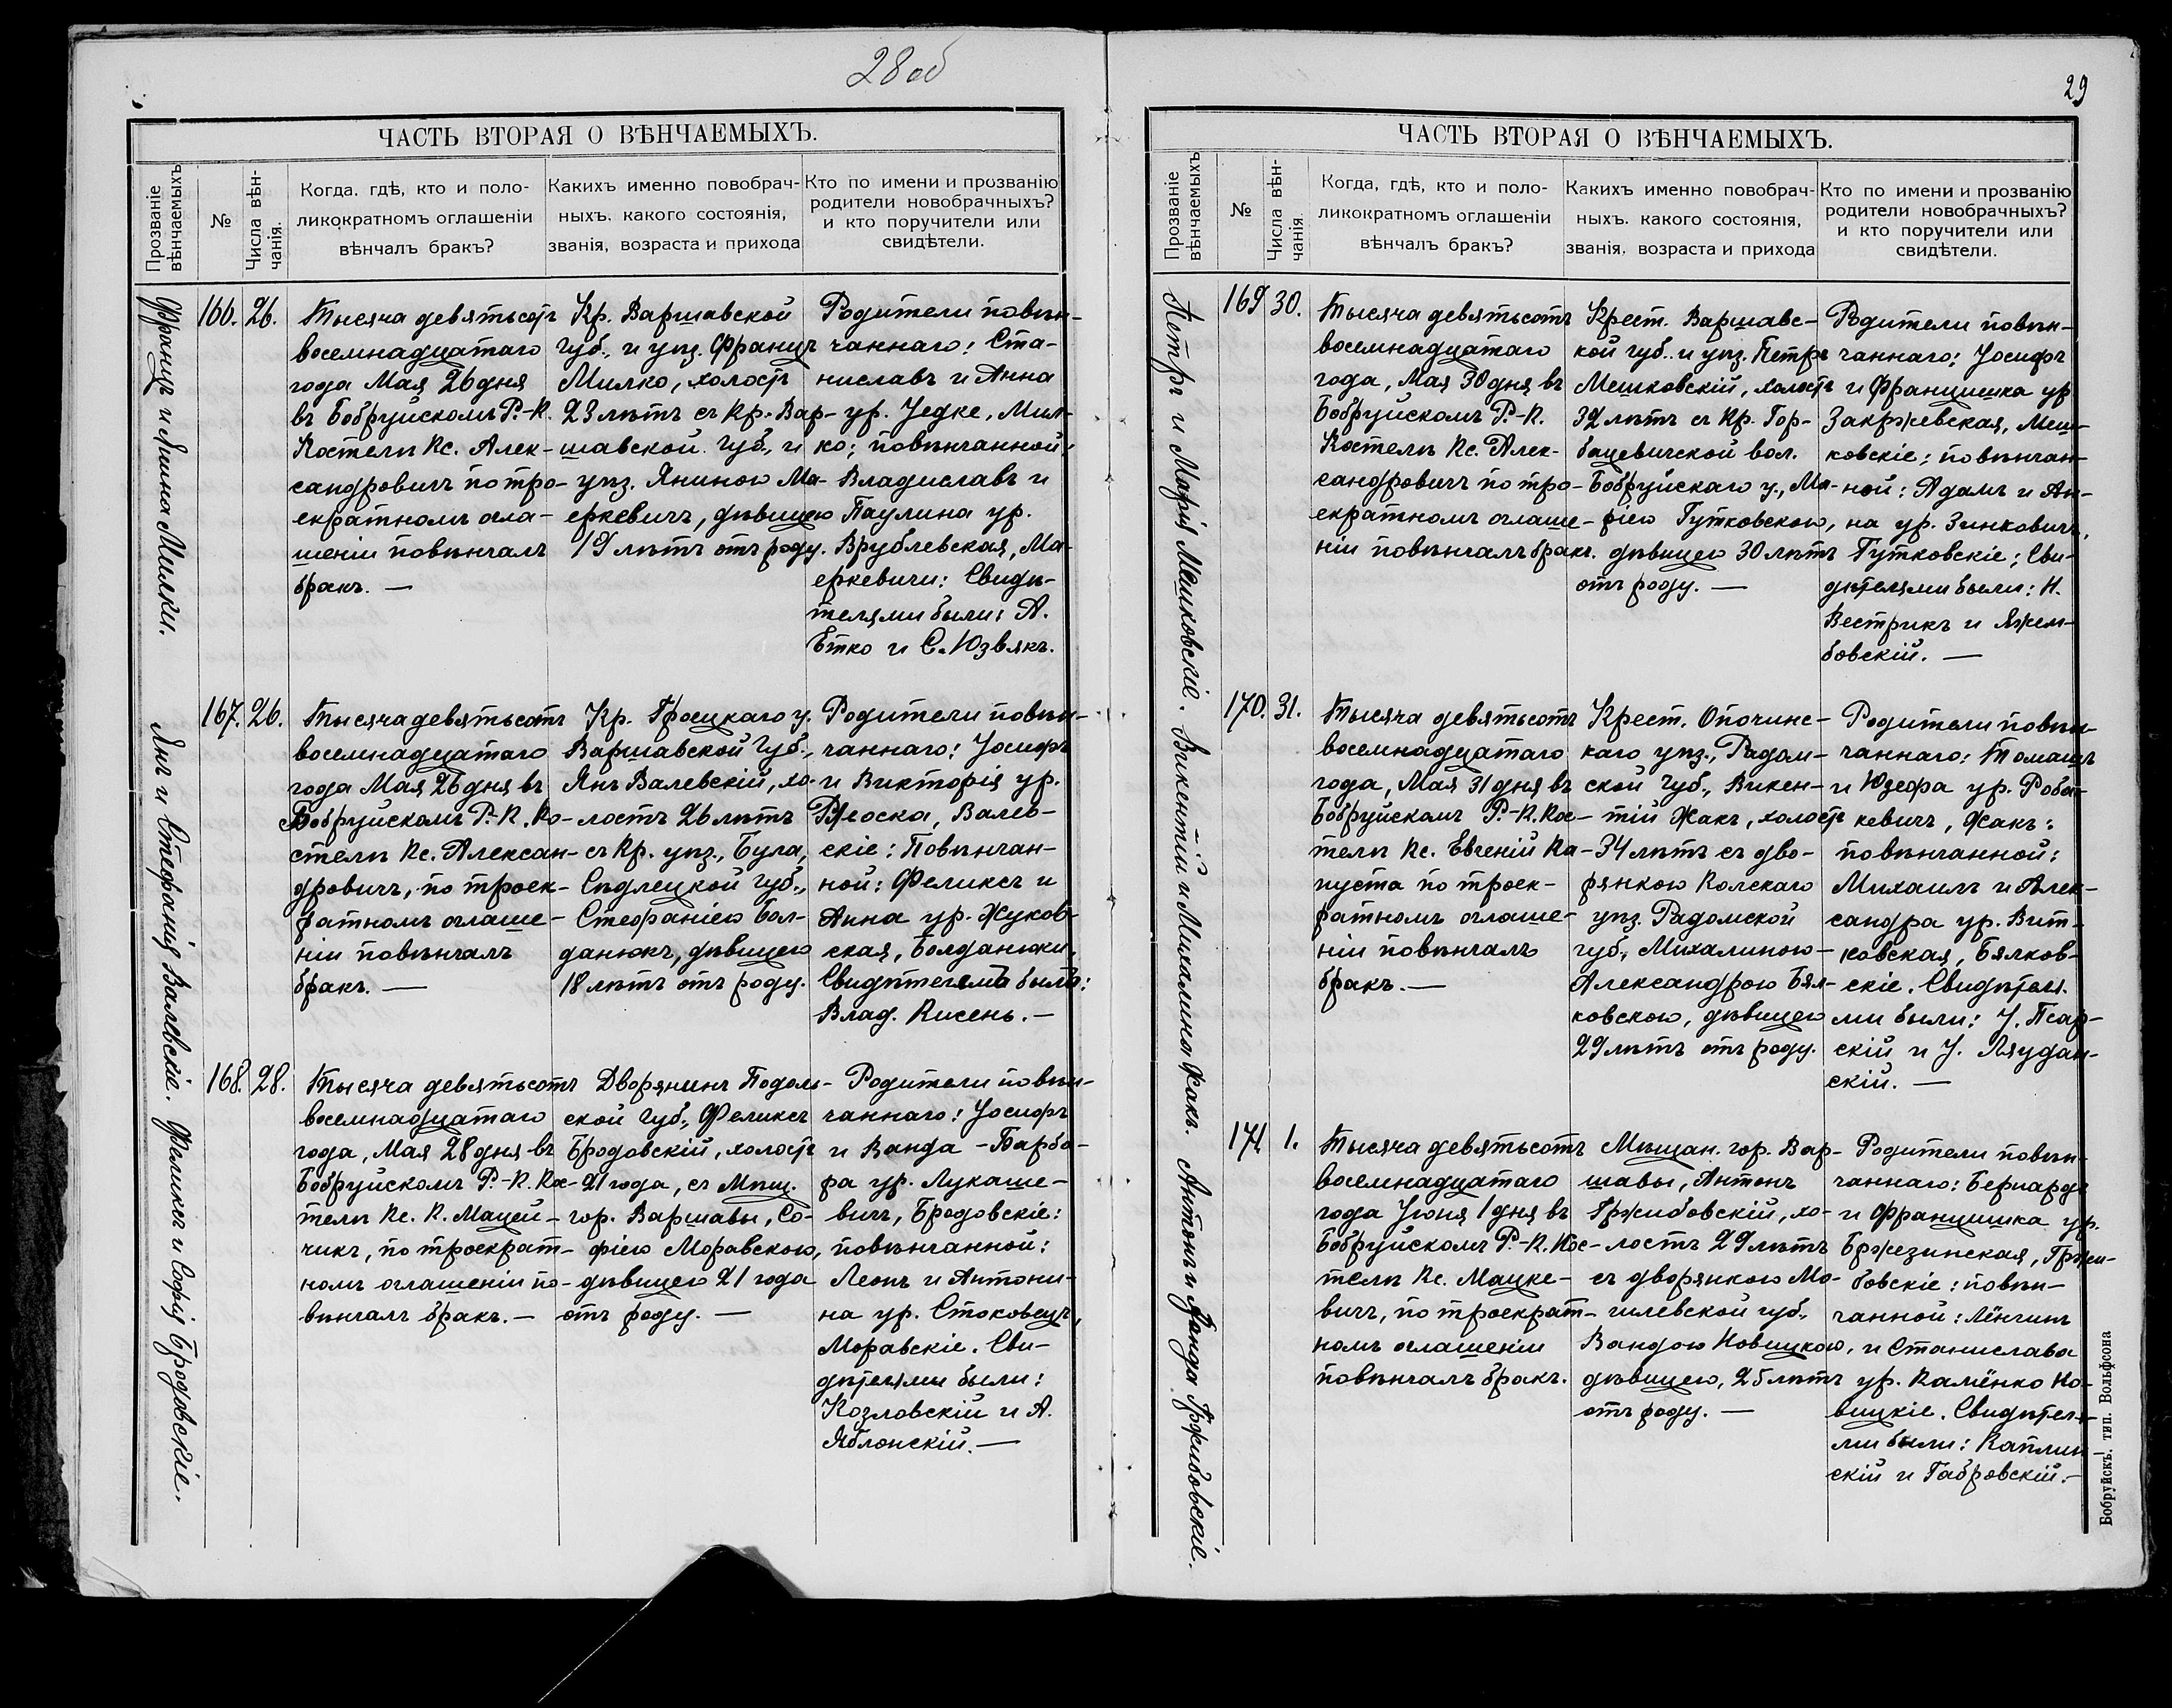 28 об
ЧАСТЬ ВТОРАЯ О ВѢНЧАЕМЫХЪ.
Прозваніе
вѣнчаемыхъ
№
Числа вѣн-
чанія.
Когда, гдѣ, кто и поло-
ликократномъ оглашеніи
вѣнчалъ бракъ?
Какихъ именно повобрач-
ныхъ. какого состоянія,
званія, возраста и прихода
Кто по имени и прозванію
родители новобрачныхъ?
и кто поручители или
свидѣтели.
Францъ и Янина Милки.
166.
26.
Тысяча девятьсотъ
восемнадцатаго
года Мая 26 дня
въ Бобруйскомъ Р.-К.
Костелѣ Кс. Алек-
сандровичъ по тро-
екратномъ огла-
шеніи повѣнчалъ
бракъ. —
Кр. Варшавской
губ., и уѣз. Францъ
Милко, холостъ
23 лѣтъ съ Кр. Вар-
шавской губ., и
уѣз. Яниною Ма-
еркевичъ, дѣвицею
19 лѣтъ отъ роду.
Родители повѣн-
чаннаго: Ста-
ниславъ и Анна
ур. Уедке, Мил-
ко; повѣнчанной:
Владиславъ и
Паулина ур.
Врублевская, Ма-
еркевичи: Свидѣ-
телями были: А.
Етко и С. Юзвякъ.
Янъ и Стефанія Валевскіе.
167.
26.
Тысяча девятьсотъ
восемнадцатаго
года Мая 26 дня въ
Бобруйскомъ Р.-К. Ко-
стелѣ Кс. Алексан-
дровичъ, по троек-
ратномъ оглаше-
ніи повѣнчалъ
бракъ. —
Кр. Гроецкаго у.
Варшавской Губ.,
Янъ Валевскій, хо-
лостъ 26 лѣтъ
съ Кр. уѣз., Була,
Сѣдлецкой Губ.,
Стефаніею Бол-
данюкъ, дѣвицею
18 лѣтъ отъ роду.
Родители повѣн-
чаннаго: Іосифъ
и Викторія ур.
Валев-
скіе: Повѣнчан-
ной: Феликсъ и
Анна ур. Жуков-
ская, Болданюки,
Свидѣтелемъ былъ:
Влад. Кисень. —
Феликсъ и Софія Бродовскіе.
168.
28.
Тысяча девятьсотъ
восемнадцатаго
года, Мая 28 дня въ
Бобруйскомъ Р.-К. Кос-
телѣ Кс. К. Мацей-
чикъ, по троекрат-
номъ оглашеніи по-
вѣнчалъ бракъ. —
Дворянинъ Подоль-
ской Губ., Феликсъ
Бродовскій, холостъ
21 года, съ Мѣщ.
гор. Варшавы, Со-
фіею Моравскою,
дѣвицею 21 года
отъ роду. —
Родители повѣн-
чаннаго: Іосифъ
и Ванда-Барба-
ра ур. Лукаше-
вичъ, Бродовскіе:
повѣнчанной:
Леонъ и Антони-
на ур. Стоковецъ,
Моравскіе. Сви-
дѣтелями были:
Козловскій и А.
Яблонскій. —
29
ЧАСТЬ ВТОРАЯ О ВѢНЧАЕМЫХЪ.
Прозваніе
вѣнчаемыхъ
№
Числа вѣн-
чанія.
Когда, гдѣ, кто и поло-
ликократномъ оглашеніи
вѣнчалъ бракъ?
Какихъ именно повобрач-
ныхъ. какого состоянія,
званія, возраста и прихода
Кто по имени и прозванію
родители новобрачныхъ?
и кто поручители или
свидѣтели.
Петръ и Марія Мешковскіе.
169
30.
Тысяча девятьсотъ
восемнадцатаго
года, Мая 30 дня въ
Бобруйскомъ Р.-К.
Костелѣ Кс. Алек-
сандровичъ по тро-
екратномъ оглаше-
ніи повѣнчалъ бракъ.
Крест. Варшавс-
кой губ.. и уѣз. Петръ
Мешковскій, холостъ
32 лѣтъ съ Кр. Гор-
бацевичской вол.
Бобруйскаго у., Ма-
ріею Гутковскою,
дѣвицею 30 лѣтъ
отъ роду. —
Родители повѣн-
чаннаго: Іосифъ
и Францишка ур.
Закржевская, Меш-
ковскіе; повѣнчан-
ной: Адамъ и Ан-
на ур. Зинковичъ,
Гутковскіе; Сви-
дѣтелями были: Н.
Вестрикъ и Яжем-
бовскій. —
Викентій и Михалина Жакъ.
170.
31.
Тысяча девятьсотъ
восемнадцатаго
года, Мая 31 дня въ
Бобруйскомъ Р.-К. Кос-
телѣ Кс. Евгеній Ка-
пуста по троек-
ратномъ оглаше-
ніи повѣнчалъ
бракъ. —
Крест. Опочинс-
каго уѣз., Радом-
ской Губ., Викен-
тій Жакъ, холостъ
34 лѣтъ съ дво-
рянкою Колскаго
уѣз. Радомской
губ., Михалиною-
Александрою Бял-
ковскою, дѣвицею
29 лѣтъ отъ роду.
Родители повѣн-
чаннаго: Томашъ
и Юзефа ур. Роба-
кевичъ, Жакъ:
повѣнчанной:
Михаилъ и Алек-
сандра ур. Вит-
ковская, Бялков-
скіе. Свидѣтеля-
ми были: І. Псар-
скій и І. Ляудан-
скій. —
Антонъ и Ванда Гржибовскіе.
171
1.
Тысяча девятьсотъ
восемнадцатаго
года Іюня 1 дня въ
Бобруйскомъ Р.-К. Кос-
телѣ Кс. Мацке-
вичъ, по троекрат-
номъ оглашеніи
повѣнчалъ бракъ.
Мѣщан. гор. Вар-
шавы, Антонъ
Гржибовскій, хо-
лостъ 29 лѣтъ
съ дворянкою Мо-
гилевской губ.,
Вандою Новицкою,
дѣвицею, 25 лѣтъ
отъ роду. —
Родители повѣн-
чаннаго: Бернардъ
и Францишка ур.
Бржезинская, Гржи-
бовскіе: повѣн-
чанной: Лёнгинъ
и Станислава
ур. Калёнко Но-
вицкіе. Свидѣтеля-
ми были: Каплин-
скій и Габровскій. —
Бобруйскъ. тип. Вольфсона